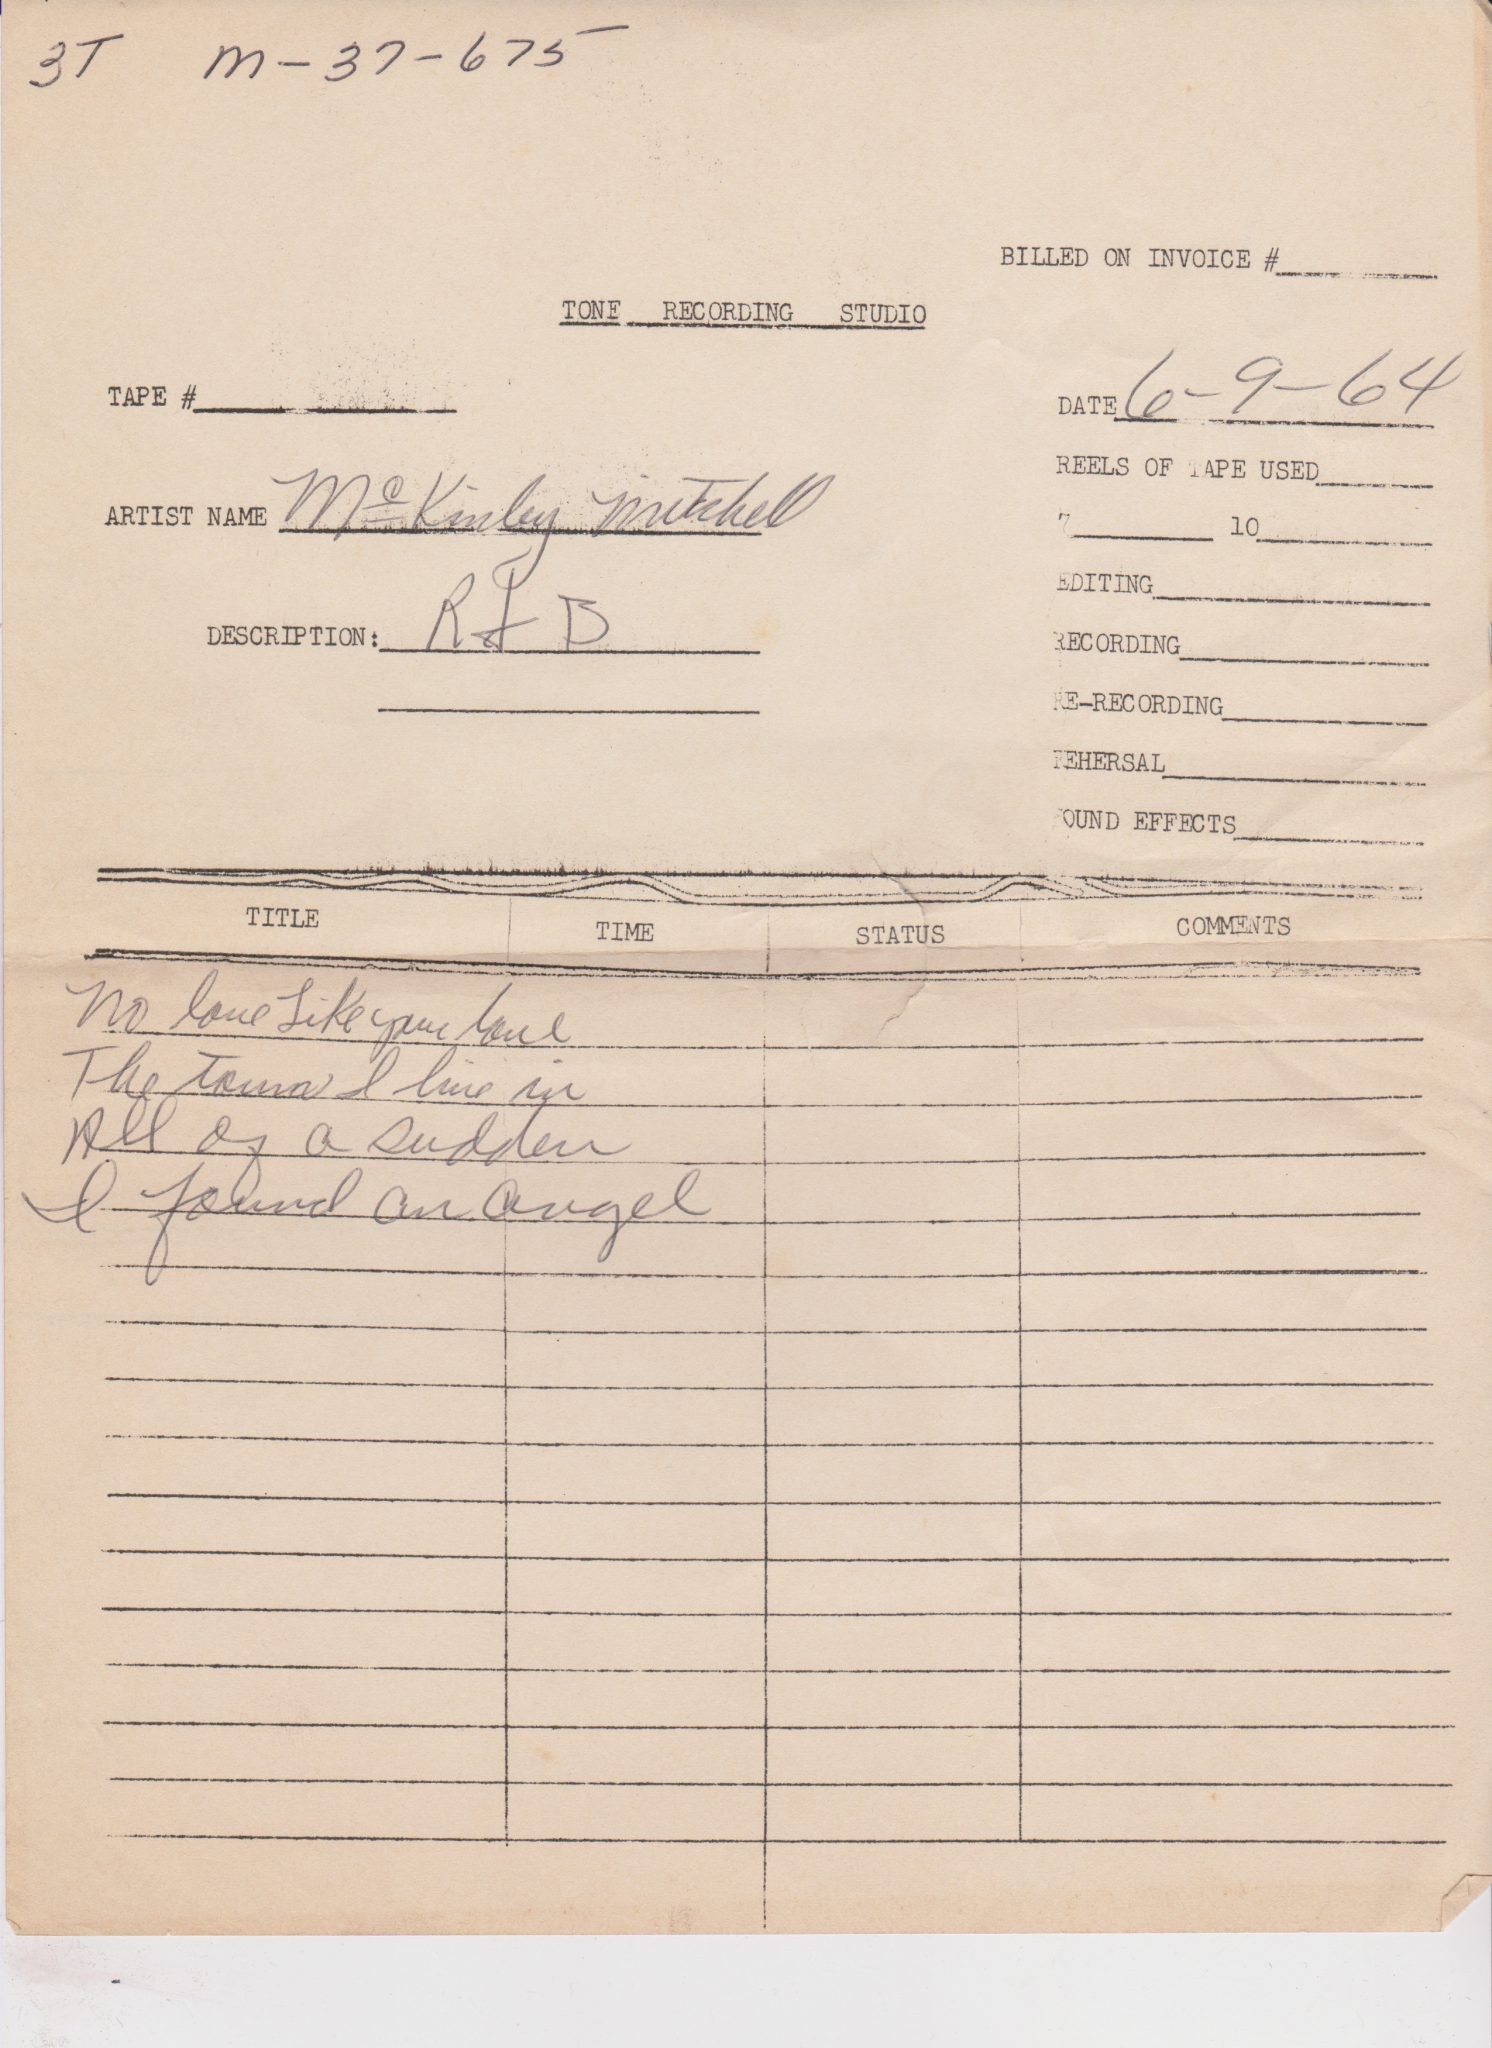 3T M-37-675
BILLED ON INVOICE #
TONE RECORDING STUDIO
TAPE #
DATE 6-9-64
REELS OF TAPE USED
ARTIST NAME McKinley Mitchell
7 10
EDITING
DESCRIPTION: R & B
RECORDING
RE-RECORDING
REHERSAL
SOUND EFFECTS
TITLE TIME STATUS COMMENTS
No love Like your love
The town I live in
All of a sudden
I found an angel